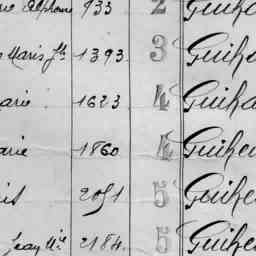 Alphonse 933 2 Guih
Marie Jh 1393. 3 Guiho
arie. 1623 4 Guiha
arie 1860 4 Guiheu
is 2051 5 Guihe
Jean Mie 2184. 5 Guiheu